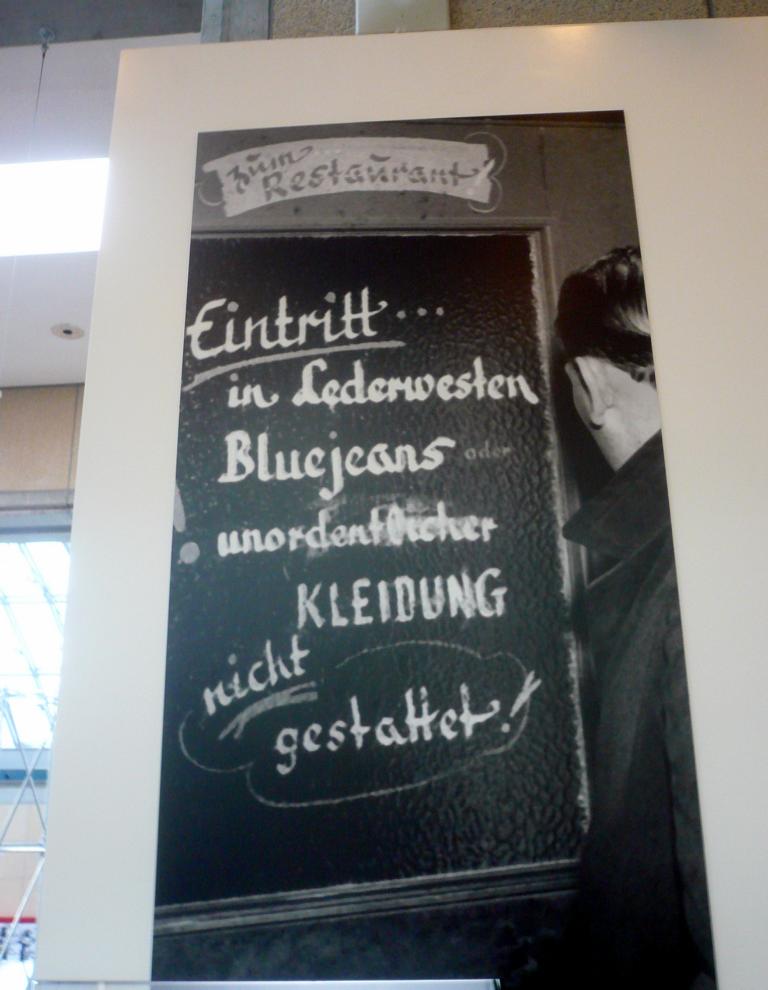 zum
Restaurant
Eintritt...
in Lederwesten
Bluejeans oder
unordentlicher
KLEIDUNG
nicht
gestattet!